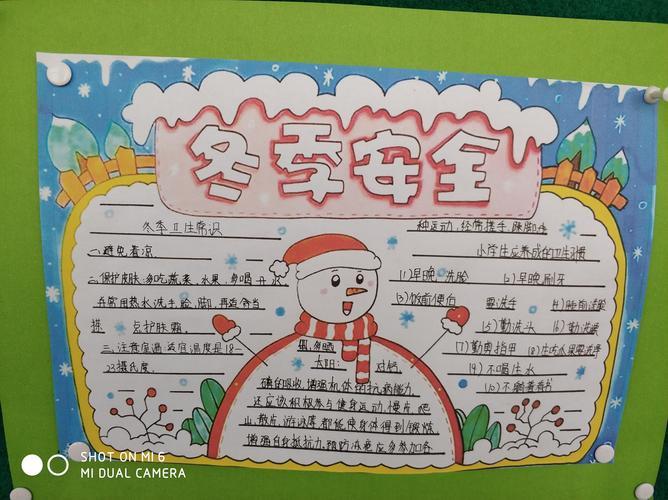 冬季安全
冬季卫生常识
一、避免着凉
二、保护皮肤:多吃蔬菜、水果,多喝开水
并常用热水洗手、脸、脚,再适当
搽 豆护肤霜.
三、注意室温:适宜温度是18-
23摄氏度.
多晒
太阳:
磷的吸收,增强机体的抗病能力
还应该积极参与健身运动,慢长 爬
山,散步,游泳等都能使身体得到锻炼
增强自身抵抗力,预防冻疮应多参加各
种运动,经常搓手、跺脚
小学生应养成的卫生习惯
(1)早晚洗脸 (2)早晚刷牙
(3)饭前便后 要洗手 (4)睡前洗脚
(5)勤洗头 (6)勤洗澡
(7)勤剪指甲 (8)生吃水果要洗净
(9)不喝生水
(10)不躺着看书
SHOT ON MI 6
MI DUAL CAMERA